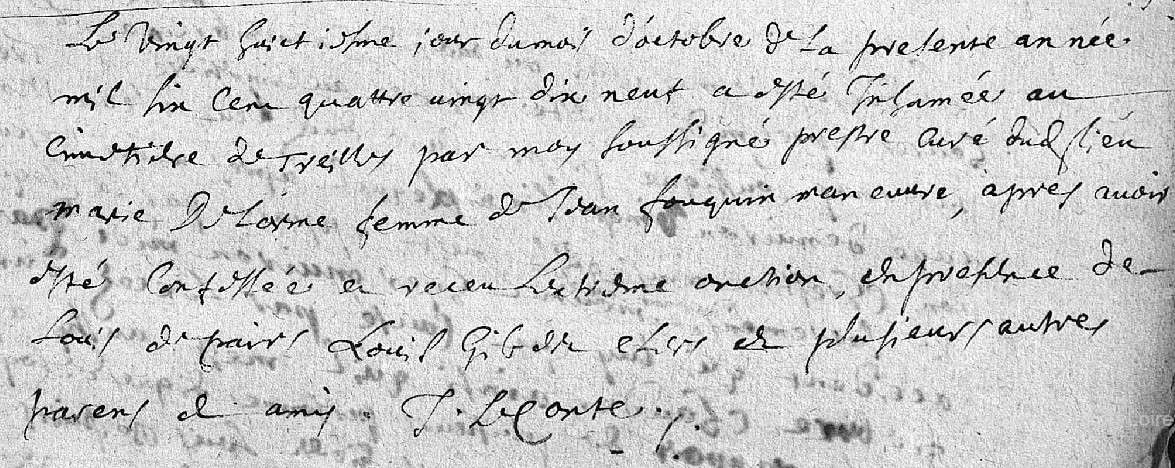 Le vingt huict iesme jour du mois d'octobre de la presente année
mil six cent quattre vingt dix neuf a esté Inhumée au
Cimetiere de Treilles par moy soussigné prestre curé dud lieu
marie Delorme femme de Jean fouquin maneuvre, apres avoir
esté Confessée et receu Lextreme onction, en presence de
Louis de Louis et de plusieurs autres
parens et amis. J. LeConte.